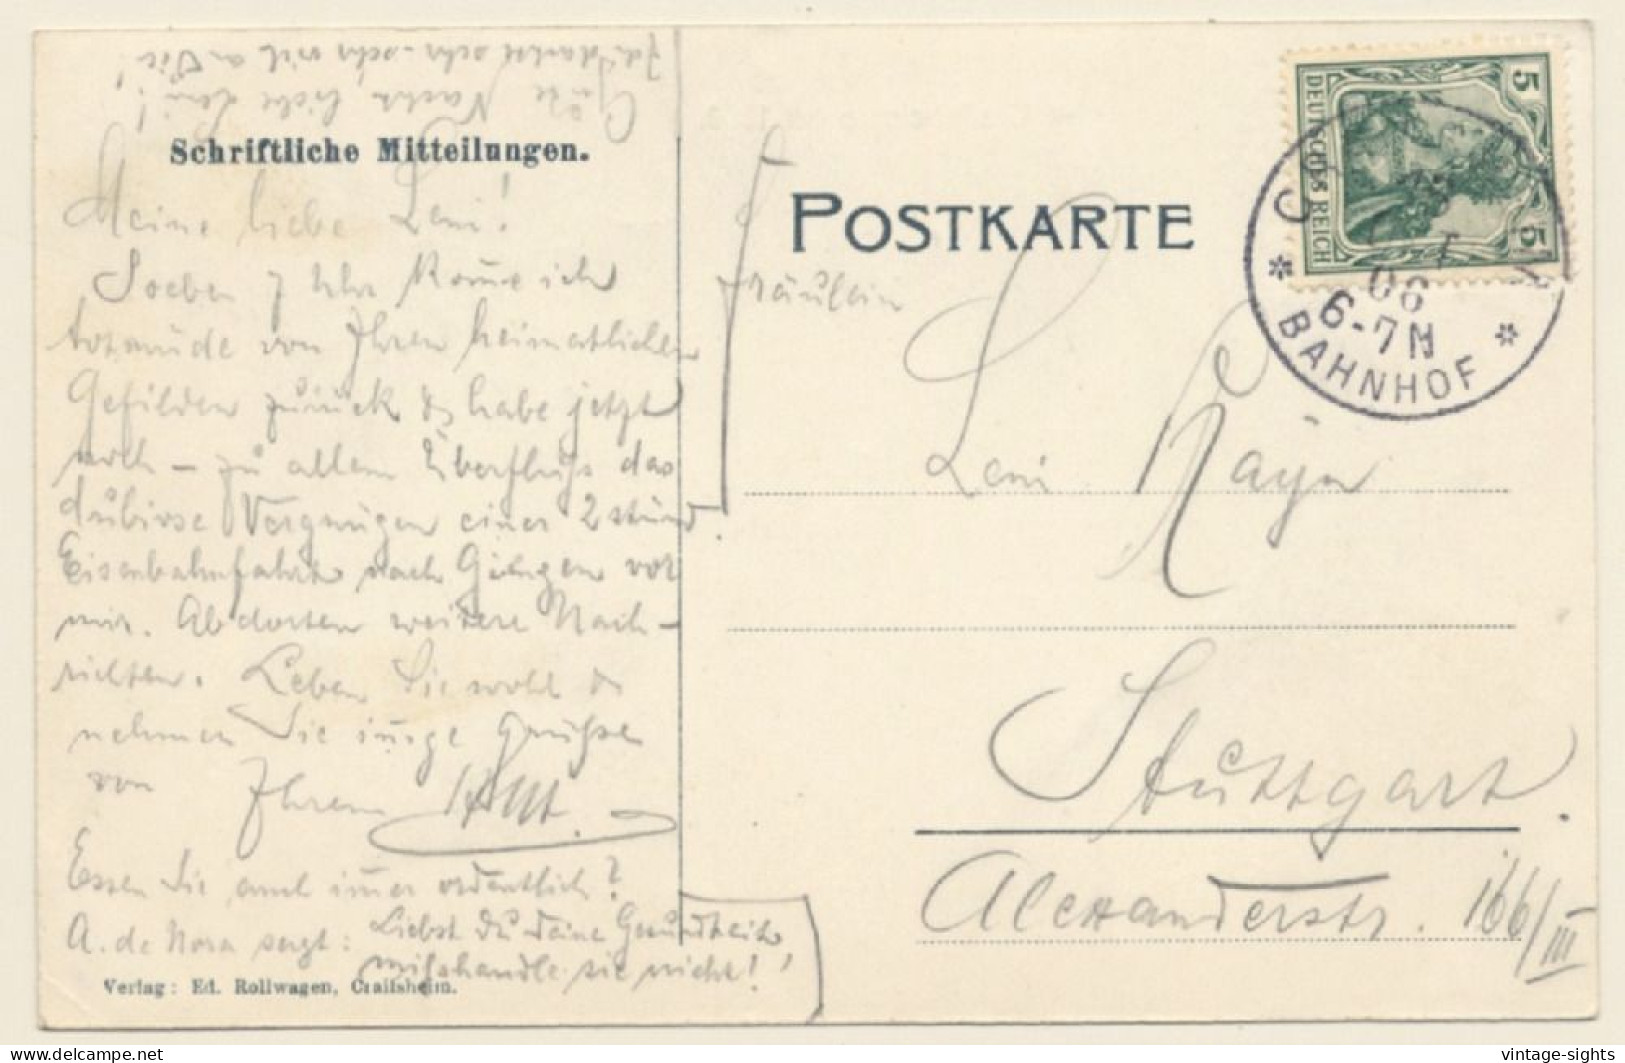 Gute Nacht, liebe Leni!
Ich denke sehr - sehr viel an Sie!
Schriftliche Mitteilungen.
Meine liebe Leni!
Soeben 7 Uhr kom̄e ich
totmüde von Ihren heimatlichen
Gefilden zurück & habe jetzt
noch – zu allem Überfluß das
dubiose Vergnügen einer 2 stünd.
Eisenbahnfahrt nach Giengen vor
mir. Ab dorten weitere Nach-
richten. Leben Sie wohl &
nehmen Sie in̄ige Grüße
von Ihrem
Essen Sie auch im̄er ordentlich?
A. de Nora sagt: Liebst du deine Gesundheit,
misshandle sie nicht!
Verlag: Ed. Rollwagen, Crailsheim.
POSTKARTE
5 DEUTSCHES REICH 5
06
6-7N
* BAHNHOF *
Fräulein
Leni
Stuttgart.
Alexanderstr. 166/III
vintage-sights
www.delcampe.net